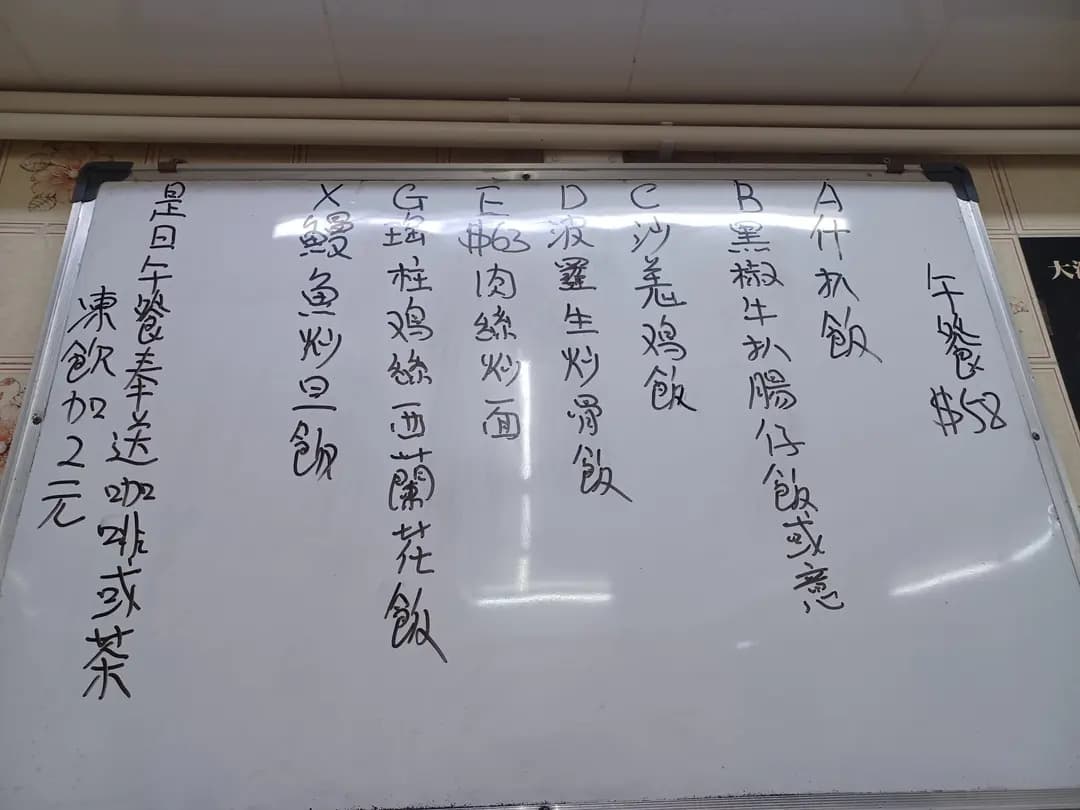 午餐 $58
A 什扒飯
B 黑椒牛扒腸仔飯或意
C 沙羌鸡飯
D 波羅生炒骨飯
E $63 肉絲炒面
G 瑤柱鸡絲西蘭花飯
X 鰻魚炒旦飯
是日午餐奉送咖啡或茶
凍飲加2元